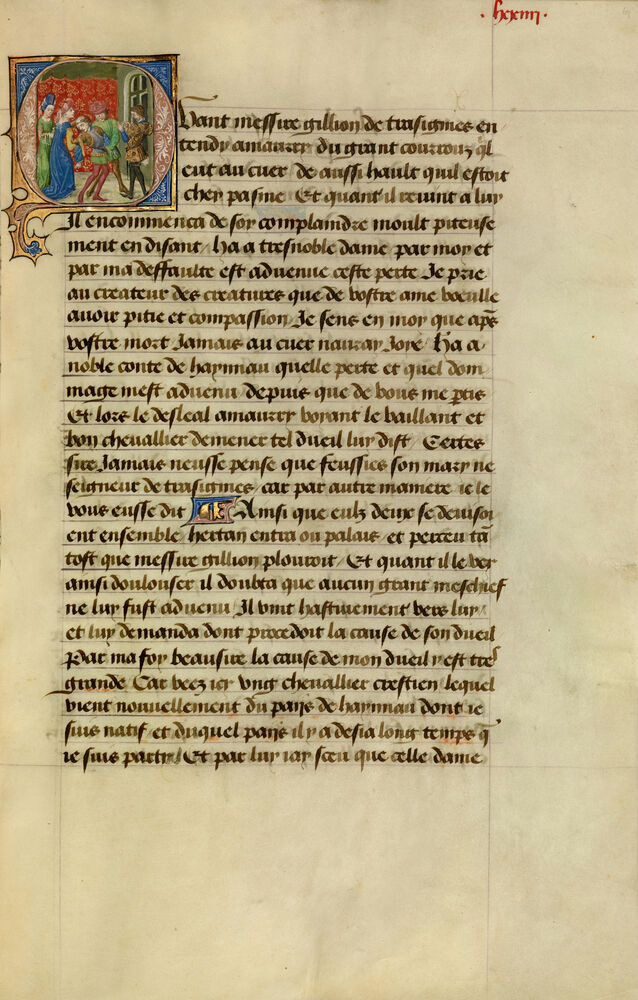 .lxxiiii.
Quant messire gillion de trasignies en
tendy amaurry du grant courrouz ql
eut au cuer de aussi hault quil estoit
chey pasme Et quant il revint a luy
Il encommenca de soy complaindre moult piteuse
ment en disant / ha a tresnoble dame par moy et
par ma deffaulte est advenue ceste perte Je prie
au createur des creatures que de vostre ame voeulle
avoir pitie et compassion / Je sens en moy que aps
vostre mort Jamais au cuer nauray Joye / Ha a
noble conte de haynnau quelle perte et quel dom
mage mest advenu depuis que de vous me ptis
Et lors le desleal amaurry voyant le vaillant et
bon chevallier demener tel dueil luy dist / Certes
sire Jamais neusse pense que feussies son mary ne
seigneur de trasignies / car par autre maniere ie le
vous eusse dit Ainsi que eulz deux se devisoi
ent ensemble / hertan entra ou palais et perceu ta
tost que messire gillion plouroit / Et quant il le vey
ainsi doulouser il doubta que aucun grant meschief
ne luy fust advenu Il vint hastivement vers luy /
et luy demanda dont procedoit la cause de son dueil
Par ma foy beausire la cause de mon dueil y est tres
grande Car veez icy ung chevallier crestien lequel
vient nouvellement du pays de haynnau dont ie
suis natif et duquel pays il y a desia long temps q
ie suis party / Et par luy iay sceu que celle dame